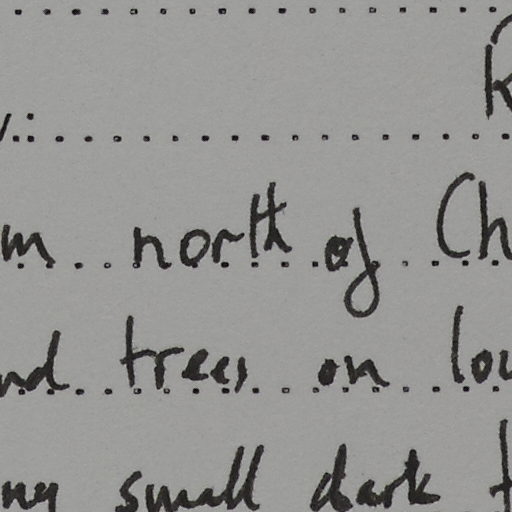 m north of Ch
nd trees on lou
ny small dark